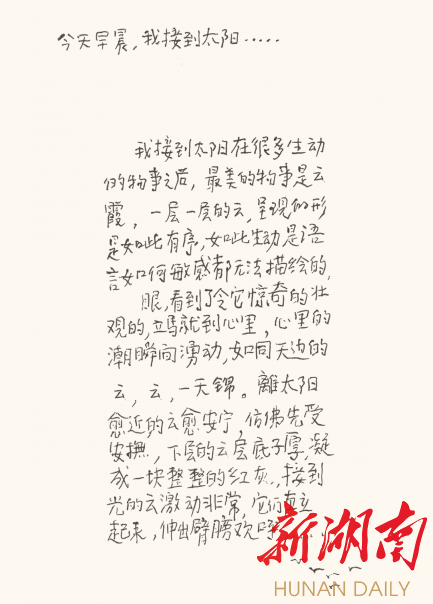 今天早晨，我接到太阳……
我接到太阳在很多生动
的物事之后，最美的物事是云
霞，一层一层的云，呈现的形
是如此有序，如此生动是语
言如何敏感都无法描绘的，
眼，看到了令它惊奇的壮
观的，立馬就到心里，心里的
潮瞬间湧动，如同天边的
云，云，一天锦。離太阳
愈近的云愈安宁，仿佛先受
安撫，下层的云层底子厚，凝
成一块整整的红灰，接到
光的云激动非常，它们直立
起来，伸出臂膀欢呼
新湖南
HUNAN DAILY